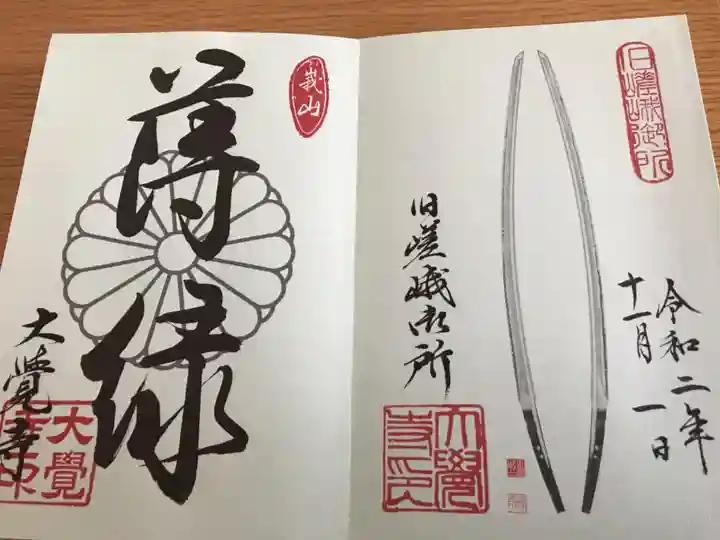 旧嵯峨御所
令和二年
十一月一日
旧嵯峨御所
大覺寺印
峩山
薄緑
大覺寺
大覺